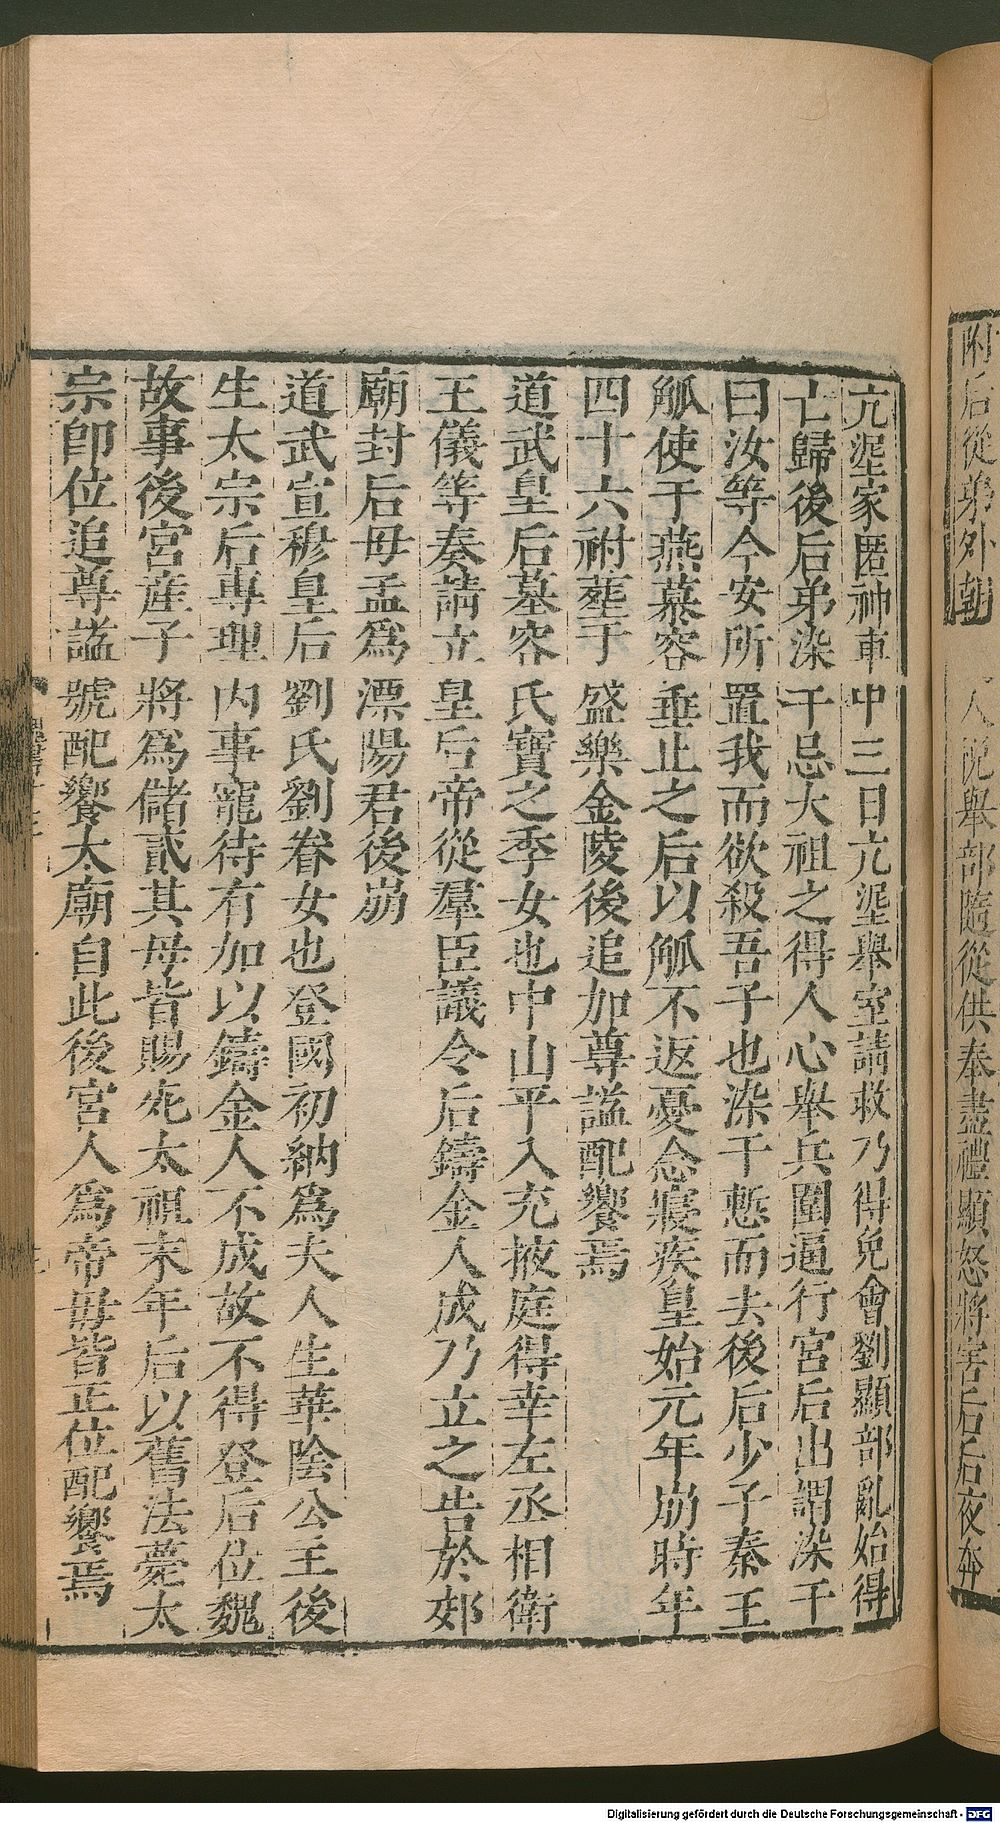 附后從弟外朝大人悅舉部隨從供奉盡禮顯怒將害后后夜奔
亢埿家匿神車中三日亢埿舉室請救乃得免會劉顯部亂始得
亡歸後后弟染干忌太祖之得人心舉兵圍逼行宮后出謂染干
曰汝等今安所置我而欲殺吾子也染干慙而去後后少子秦王
觚使于燕慕容垂止之后以觚不返憂念寢疾皇始元年崩時年
四十六祔葬于盛樂金陵後追加尊謚配饗焉
道武皇后慕容氏寶之季女也中山平入充掖庭得幸左丞相衛
王儀等奏請立皇后帝從羣臣議令后鑄金人成乃立之告於郊
廟封后母孟爲漂陽君後崩
道武宣穆皇后劉氏劉眷女也登國初納爲夫人生華陰公主後
生太宗后專理內事寵待有加以鑄金人不成故不得登后位魏
故事後宮産子將爲儲貳其母皆賜死太祖末年后以舊法薨太
宗卽位追尊謚號配饗太廟自此後宮人爲帝母皆正位配饗焉
Digitalisierung gefördert durch die Deutsche Forschungsgemeinschaft - DFG